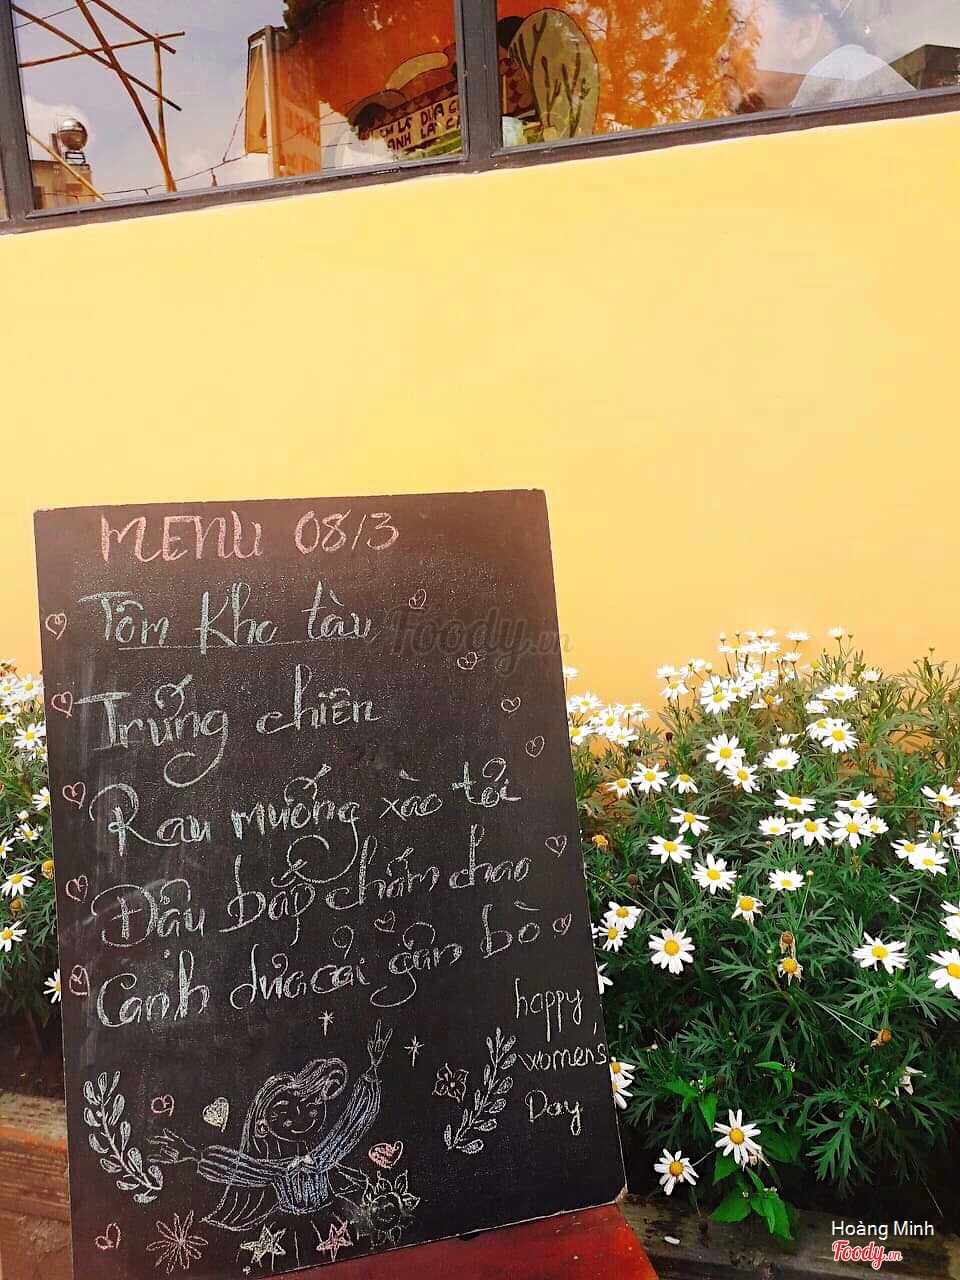 EM LÀ DƯA C
ANH LÀ CÀ
MENU 08/3
Tôm Kho tàu
Foody.vn
Trứng chiên
Rau muống xào tỏi
Đậu bắp chấm chao
Canh dưa cải gân bò
happy
women's
Day
Hoàng Minh
Foody.vn